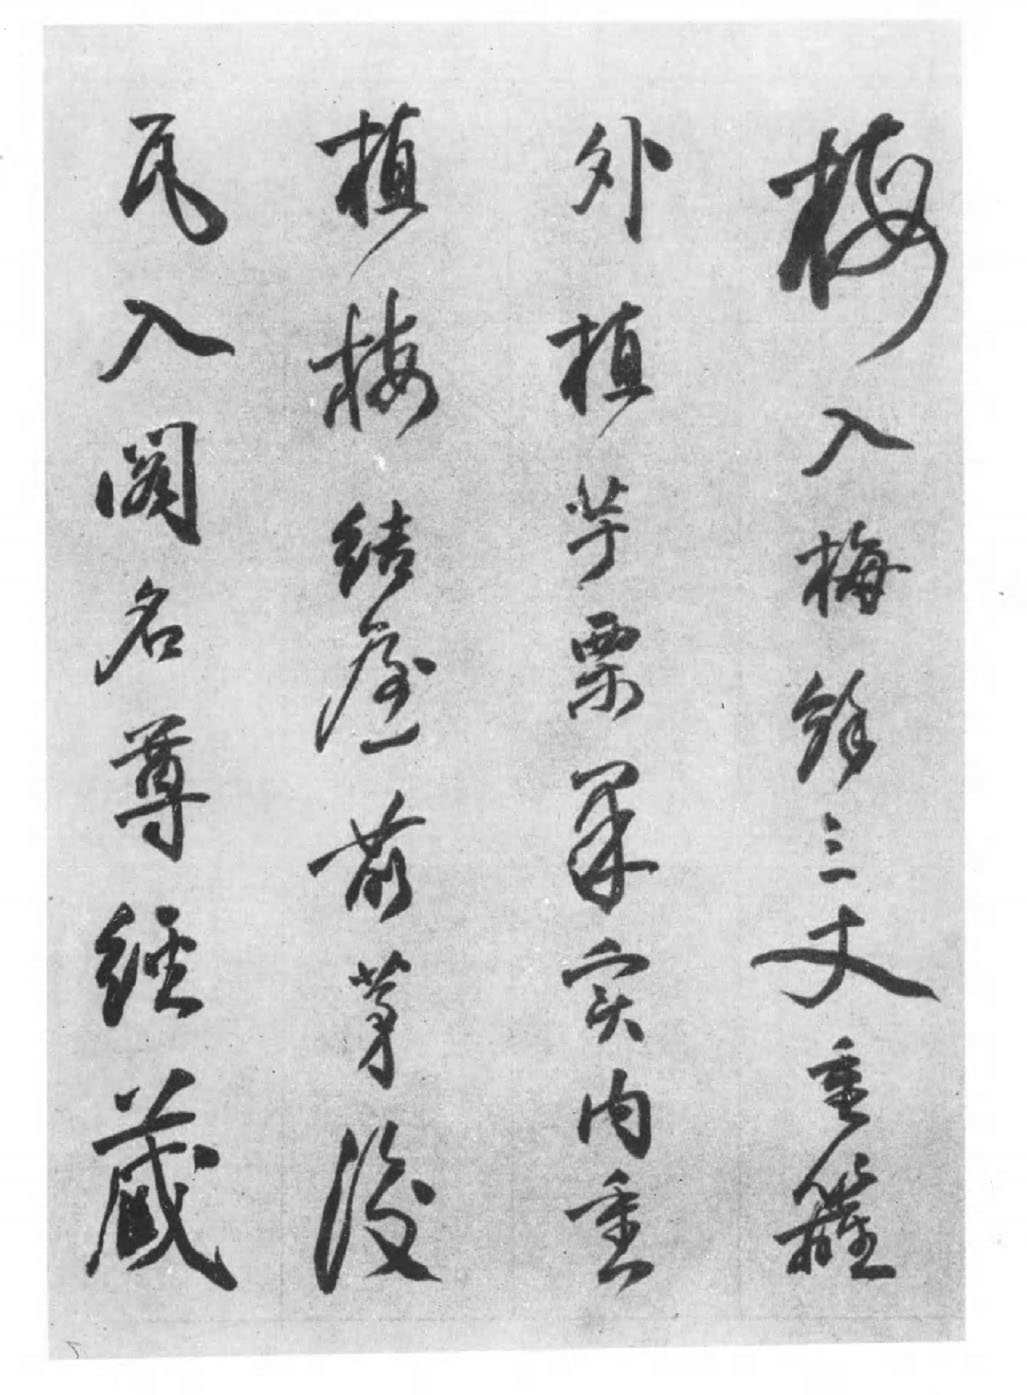 梅入梅餘三丈重籬
外植芋栗果实内重
植梅結屋前茅後
瓦入閣名尊經藏